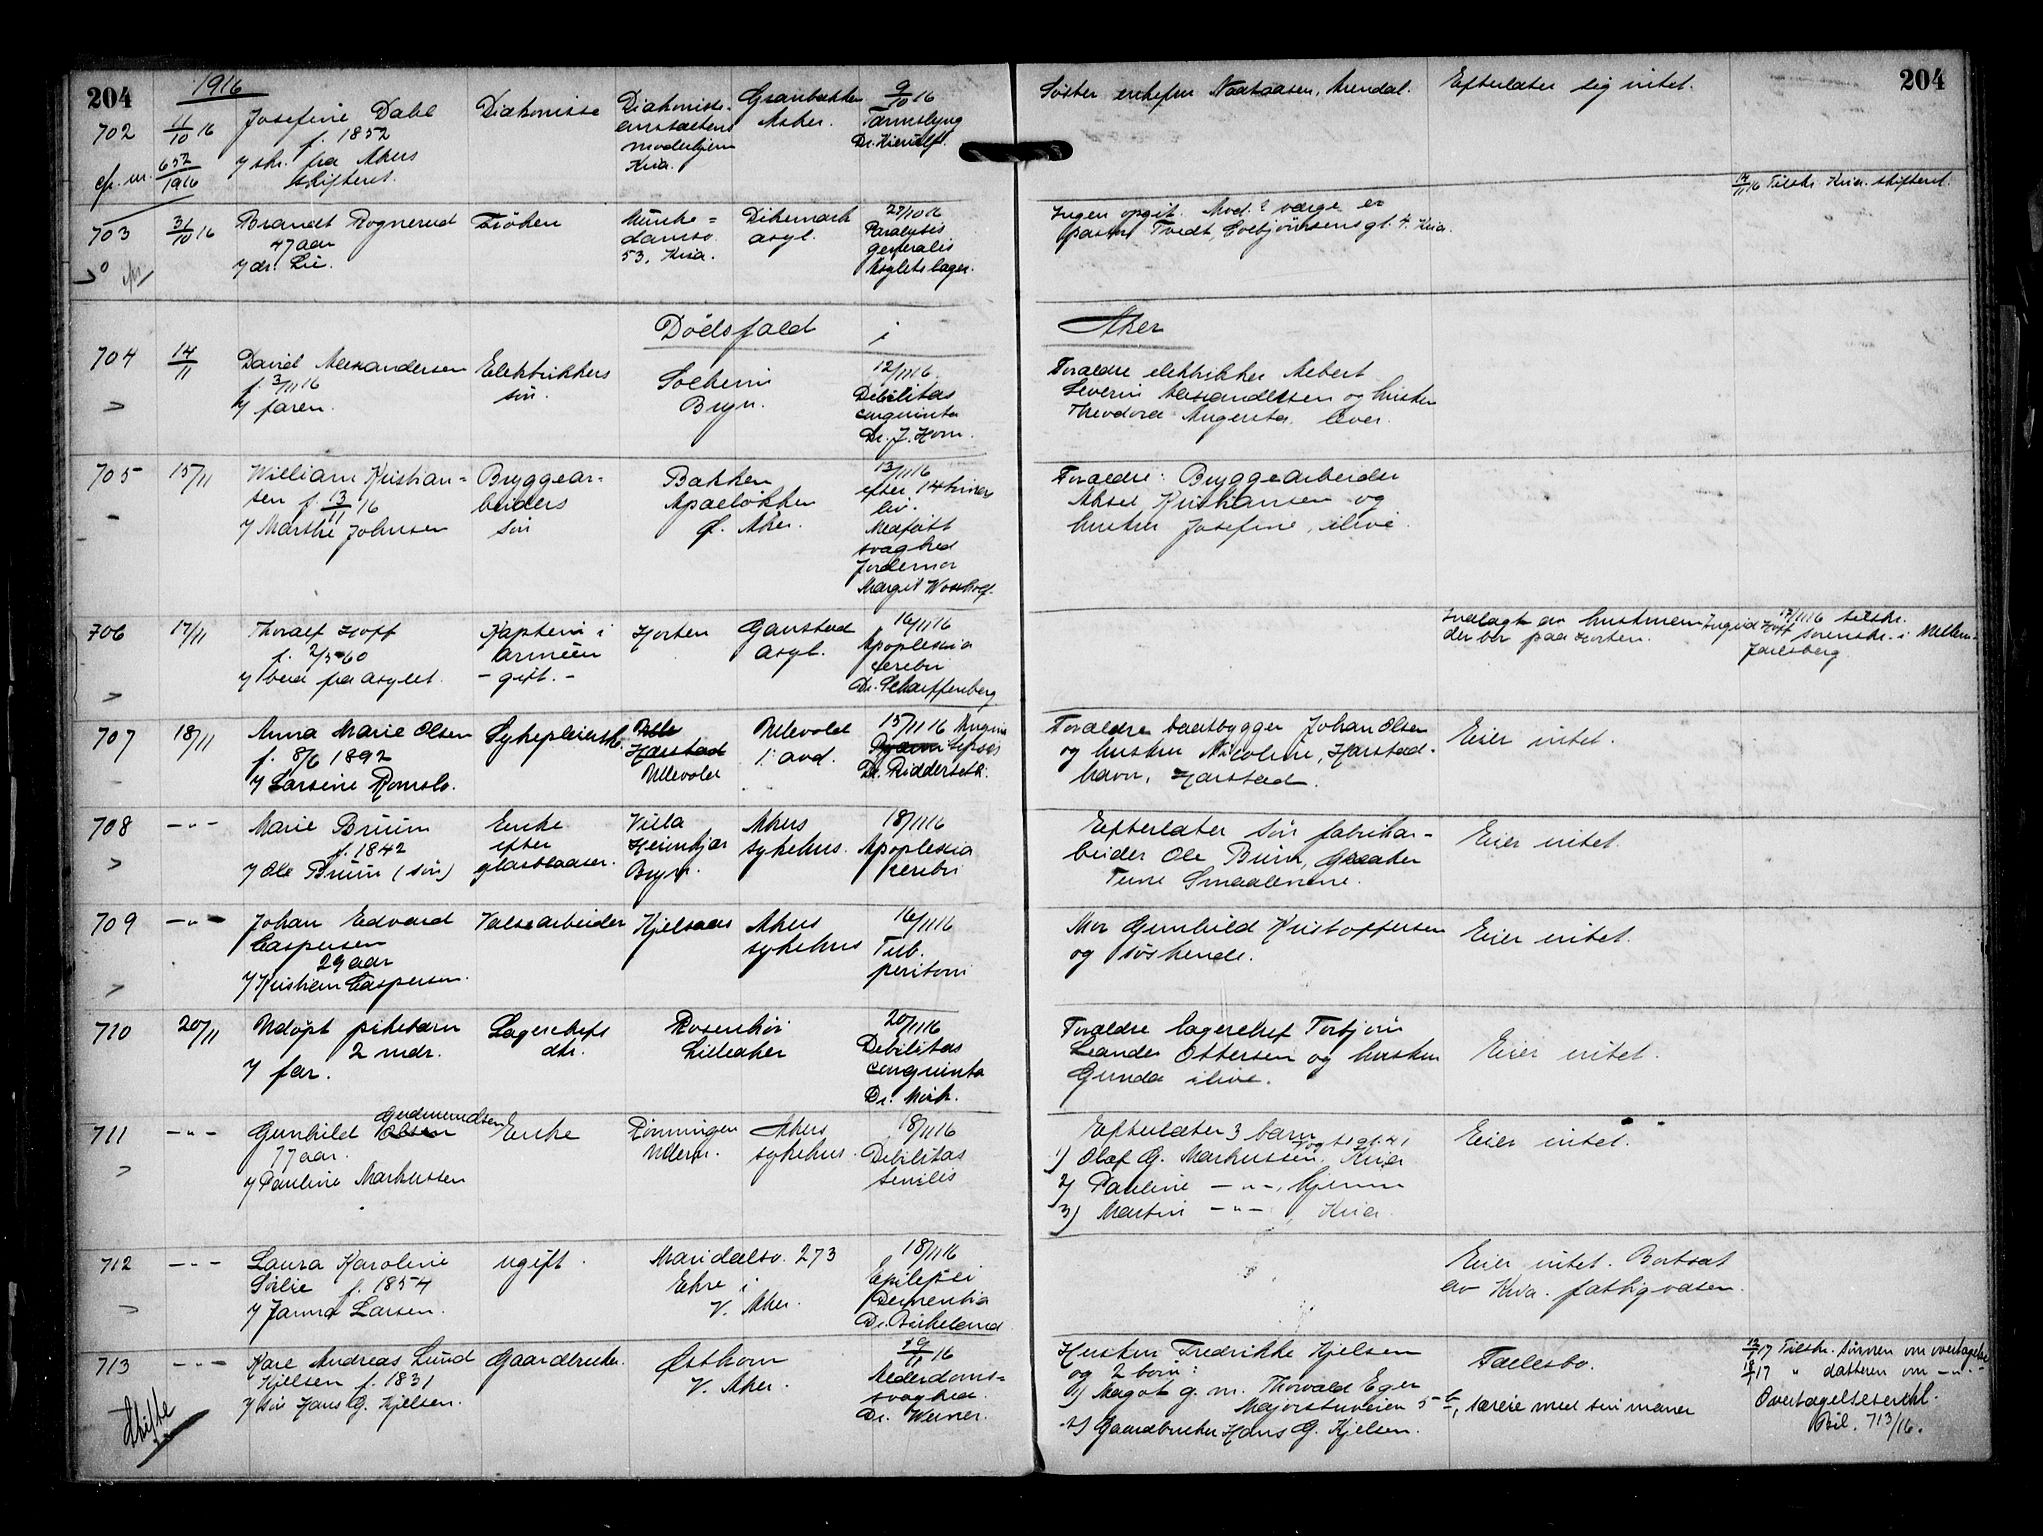 204
1916
204
702
11/10 16
Josefine Dahl
f. 1852
v/ skr. fra Akers
skifteret.
cfr. nr. 652/1916
Diakonisse
Diakonisse-
anstaltens
moderhjem
Kria.
Granbakken
Asker.
9/10 16
Tarmslyng
Dr. Kierulf.
Søster enkefru Naatsaasen, Arendal.
Efterlater sig intet.
703
31/10 16
Brandt Rognerud
47 aar
v/ dr. Lie.
Frøken
Munke=
damsv.
53. Kria.
Dikemark
asyl.
27/10 16
Paralysis
generalis
Asylets læge.
Ingen opgit. Mod. ? værge er
pastor Tvedt, Esebjörnsensgt. 4. Kria.
14/11 16 Tilskr. Kria. skifteret.
Dødsfald i
Aker
704
14/11
David Alexandersen
f. 3/11 16
v/ faren.
Elektrikkers
søn.
Solheim
Bryn.
12/11 16.
Debilitas
congunita
Dr. J. Horn.
Foraldre elektrikker Albert
Severin Alexandersen og hustru
Theodora Augusta. lever.
705
15/11
William Kristian=
sen f. 13/11 16
v/ Marthe Johnsen
Bryggear-
beiders
søn
Bakken
Apalløkken
Ø. Aker.
13/11 16
efter 14 timers
liv.
Medfødt
svaghed
Jordemor
Margit Woxholt.
Foraldre: Bryggearbeider
Aksel Kristiansen og
hustru Josefine, ilive.
706
17/11
Thoralf Hoff
f. 2/5-60
v/ bud fra asylet.
Kaptein i
armeen
- gift. -
Horten
Gaustad
asyl.
16/11 16
Apoplexia
cerebri
Dr. Scharffenberg
Indlagt av hustruen Ingrid Hoff
der bor paa Horten.
17/11 16 tilskr.
sorenskr. i Mellem-
Jarlsberg.
707
18/11
Anna Marie Olsen
f. 8/6 1892
v/ Larsine Romslo.
Sykepleiersk.
Ulle
Harstad
Ullevold
Ullevold
1. avd.
15/11 16 Angina
Sepsis
Dr. Riddersett.
Foraldre baatbygger Johan Olsen
og hustru Nicoline, Harstad-
havn, Harstad.
Eier intet.
708
-"-
Marie Bruun
f. 1842
v/ Ole Bruun (søn)
Enke
efter
glasblaaser.
Villa
Heimkjær
Bryn.
Akers
sykehus.
18/11 16
Apoplexia
cerebri
Efterlater søn fabrikar-
beider Ole Bruun, Graaten
Tune Smaalenene.
Eier intet.
709
-"-
Johan Edvard
Caspersen
29 aar
v/ Kristian Caspersen.
Valsearbeider
Kjelsaas
Akers
sykehus
16/11 16
Tub.
peritoni
Mor Gunhild Kristoffersen
og søskende.
Eier intet.
710
20/11
Udøpt pikebarn
2 mdr.
v/ far.
Lagerchefs
dtr.
Rosenhøi
Lilleaker
20/11 16
Debilitas
congunita
Dr. Mørk.
Foraldre lagerchef Torbjørn
Leander Ottersen og hustru
Gunda ilive.
Eier intet.
711
-"-
Gudmundsen
Gunhild Olsen
77 aar.
v/ Pauline Markussen
Enke
Rønningen
Ullern.
Akers
sykehus.
18/11 16
Debilitas
senilis
Efterlater 3 barn
1) Olaf G. Markussen. Vogtsgt. 41 Kria
2) Pauline -"-, hjemme
3) Martin -"-, Kria.
Eier intet.
712
-"-
Laura Karoline
Sørlie f. 1854
v/ Janna Larsen.
ugift.
Maridalsv. 273
Ekre i
V. Aker.
18/11 16
Epilepsi
Dementia
Dr. Birkeland
Eier intet. Bortsat
av Kria. fattigvæsen.
713
-"-
Karl Andreas Lund
Kjelsen f. 1831
v/ søn Hans G. Kjelsen.
Skifte
Gaardbruker.
Østhorn
V. Aker.
19/11 16
Alderdoms=
svaghed.
Dr. Werner.
Hustru Fredrikke Kjelsen
og 2 børn:
1) Magot g. m. Thorvald Eger
Majorstuveien 5 b, særeie med sin mann
2) Gaardbruker Hans G. Kjelsen.
Fælesbo.
12/7 17 Tilskr. sønnen om overtagelse
18/7 17 " datteren om -"-
Overtagelseserkl.
Bil. 713/16.